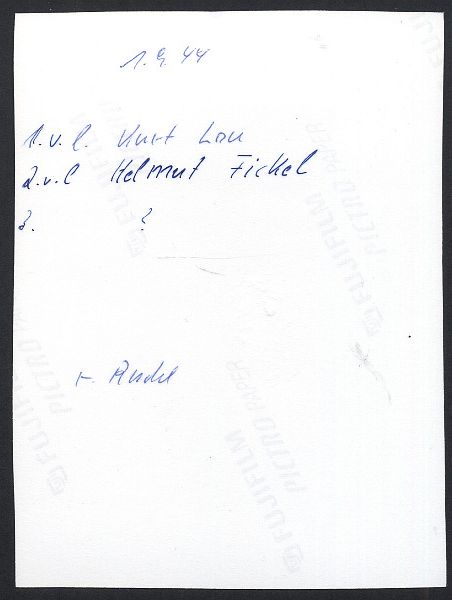 1.9.44
1.v.l. Kurt Lau
2.v.l Helmut Fickel
3. ?
FUJIFILM
PICTRO PAPER
FUJIFILM
PICTRO PAPER
FUJIFILM
PICTRO PAPER